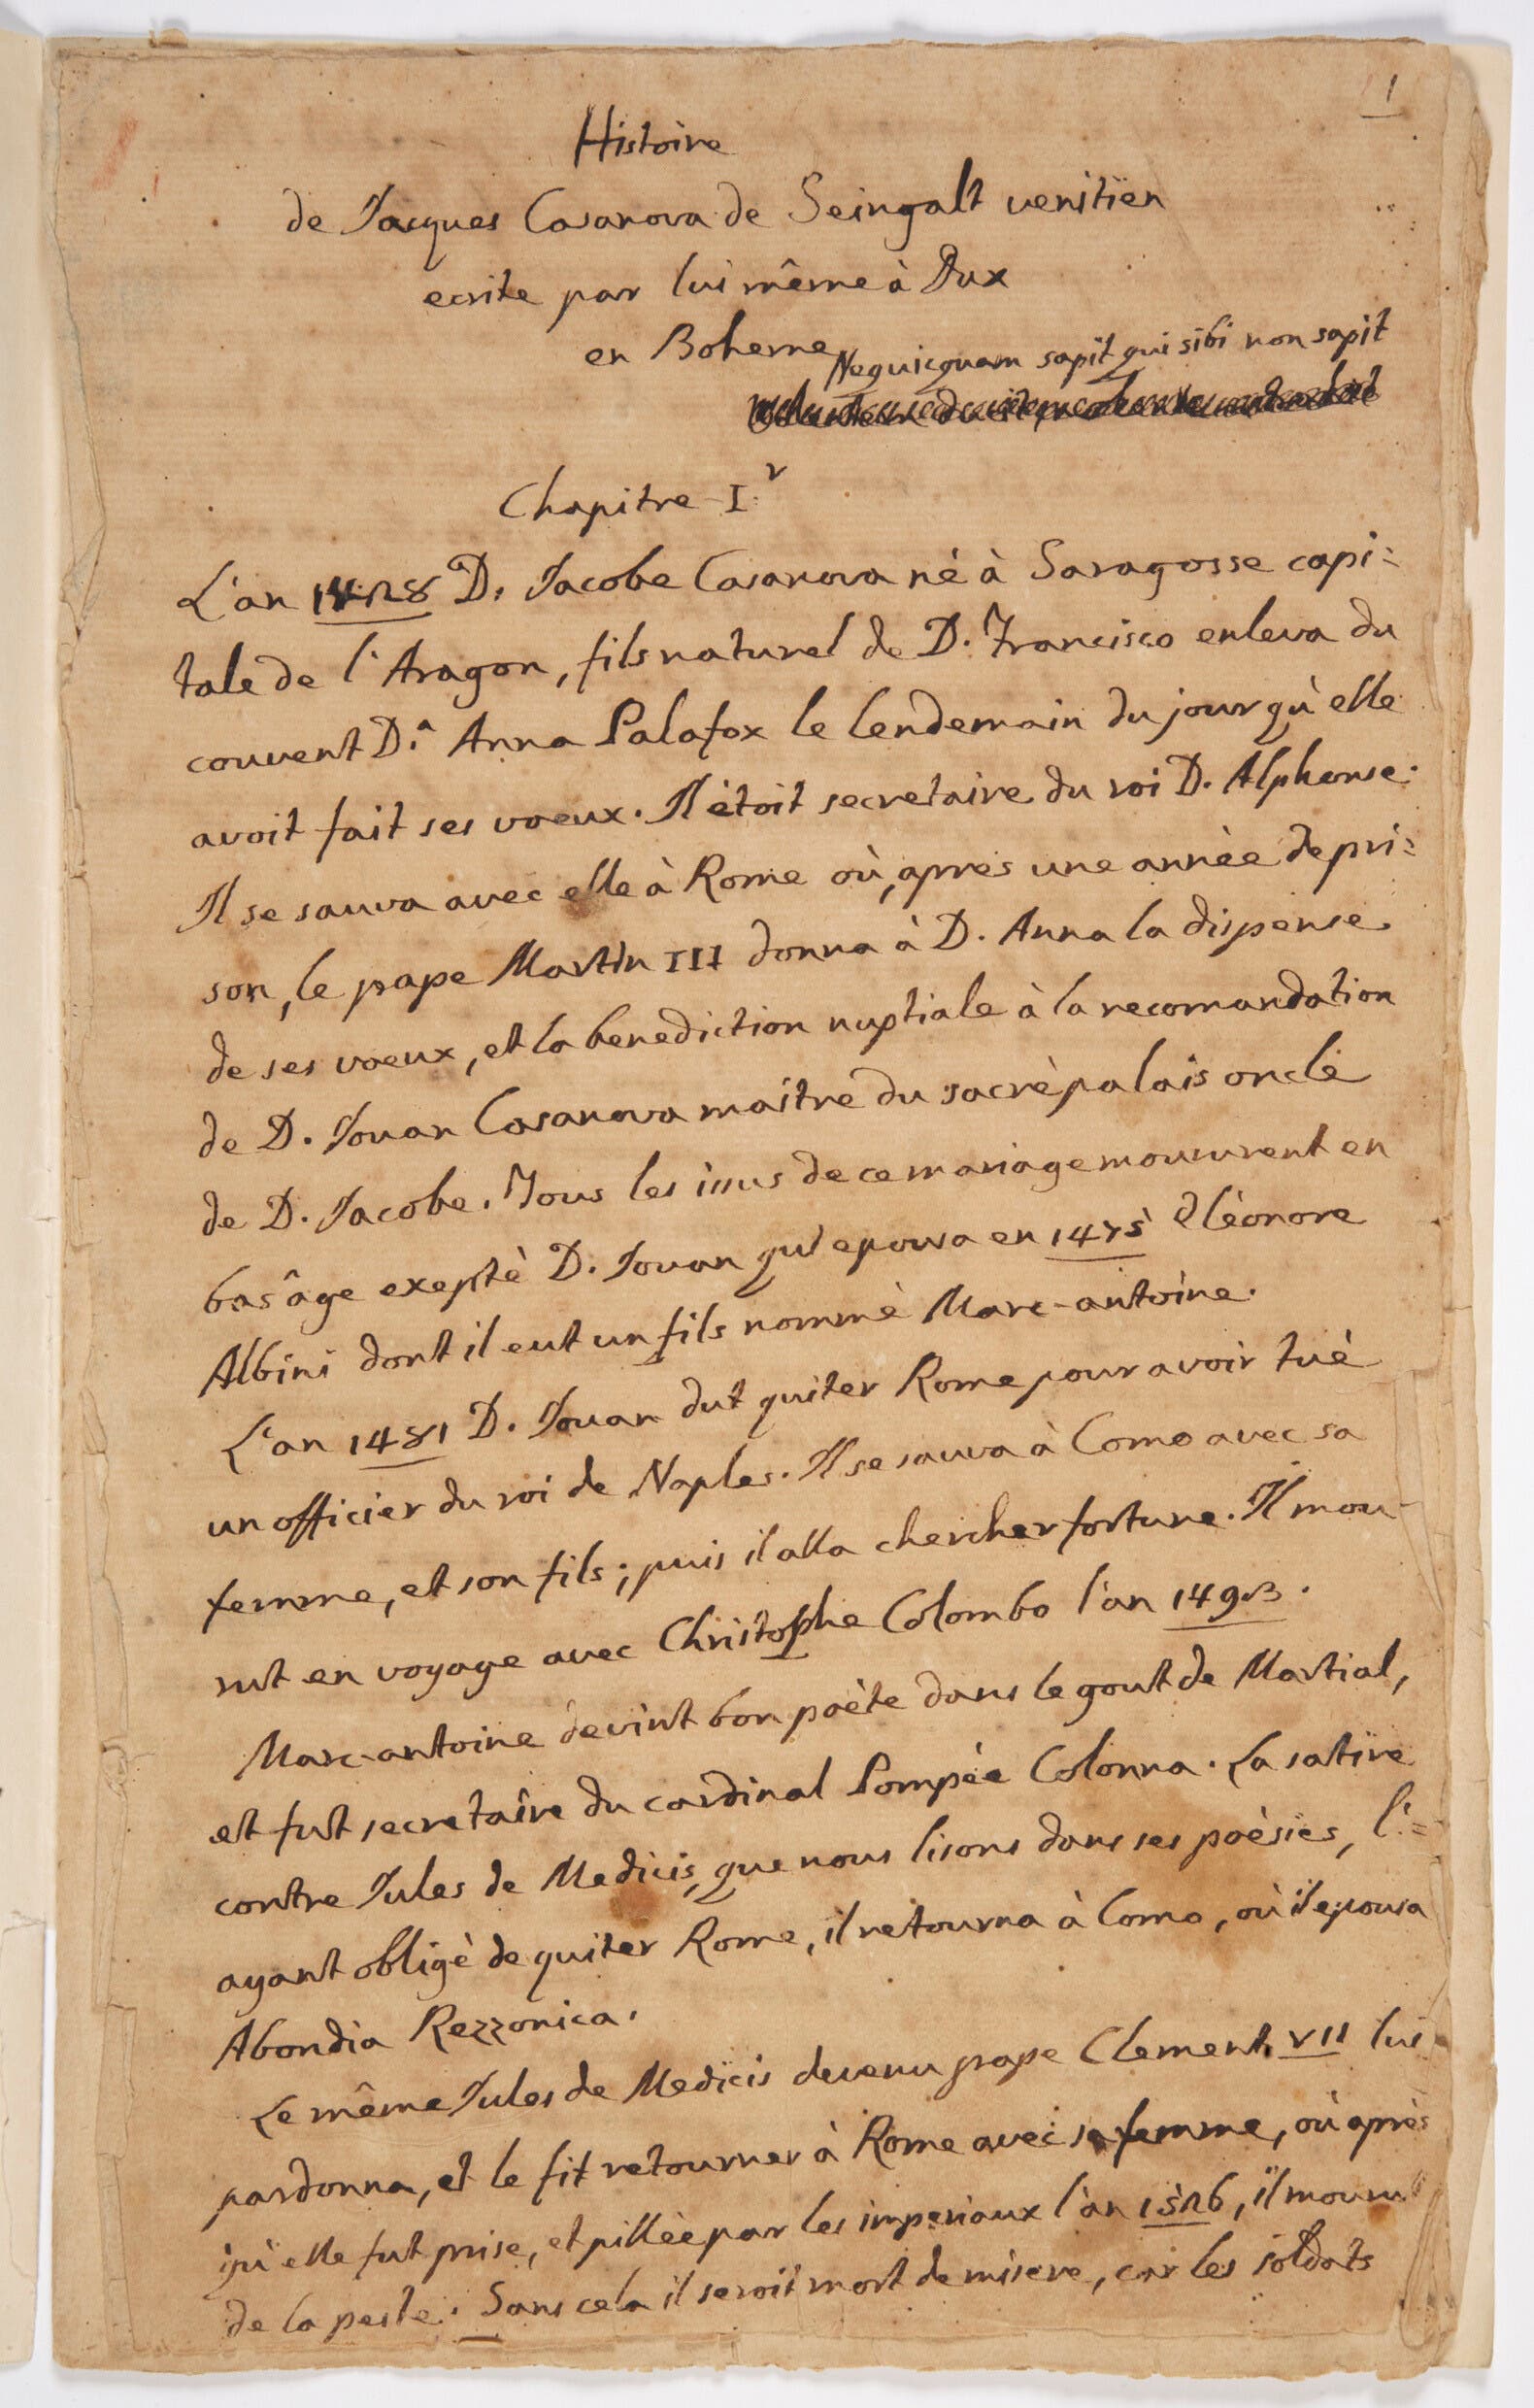 1
Histoire
de Jacques Casanova de Seingalt venitïen
ecrite par lui même à Dux
en Boheme
Nequicquam sapit qui sibi non sapit
Chapitre I.r
L'an 1428 D. Jacobe Casanova né à Saragosse capi=
tale de l'Aragon, fils naturel de D. Francisco enleva du
couvent D.a Anna Palafox le lendemain du jour qu'elle
avoit fait ses voeux. Il ètoit secretaire du roi D. Alphonse.
Il se sauva avec elle à Rome où, apres une annèe de pri=
son, le pape Martin III donna à D. Anna la dispense
de ses voeux, et la benediction nuptiale à la recomandation
de D. Jouan Casanova maitre du sacrè palais oncle
de D. Jacobe. Tous les issus de ce mariage moururent en
bas âge exeptè D. Jouan qui epousa en 1475 Elèonore
Albini dont il eut un fils nommè Marc-antoine.
L'an 1481 D. Jouan dut quiter Rome pour avoir tuè
un officier du roi de Naples. Il se sauva à Como avec sa
femme, et son fils; puis il alla chercher fortune. Il mou-
rut en voyage avec Christophe Colombo l'an 1493.
Marc-antoine devint bon poète dans le gout de Martial,
et fut secretaire du cardinal Pompèe Colonna. La satïre
contre Jules de Medicis, que nous lisons dans ses poèsïes, l'=
ayant obligè de quiter Rome, il retourna à Como, où il epousa
Abondia Rezzonica.
Le même Jules de Medicis devenu pape Clement VII lui
pardonna, et le fit retourner à Rome avec sa femme, où après
qu'elle fut prise, et pillèe par les imperiaux l'an 1526, il mourut
de la peste. Sans cela il seroit mort de misere, car les soldats